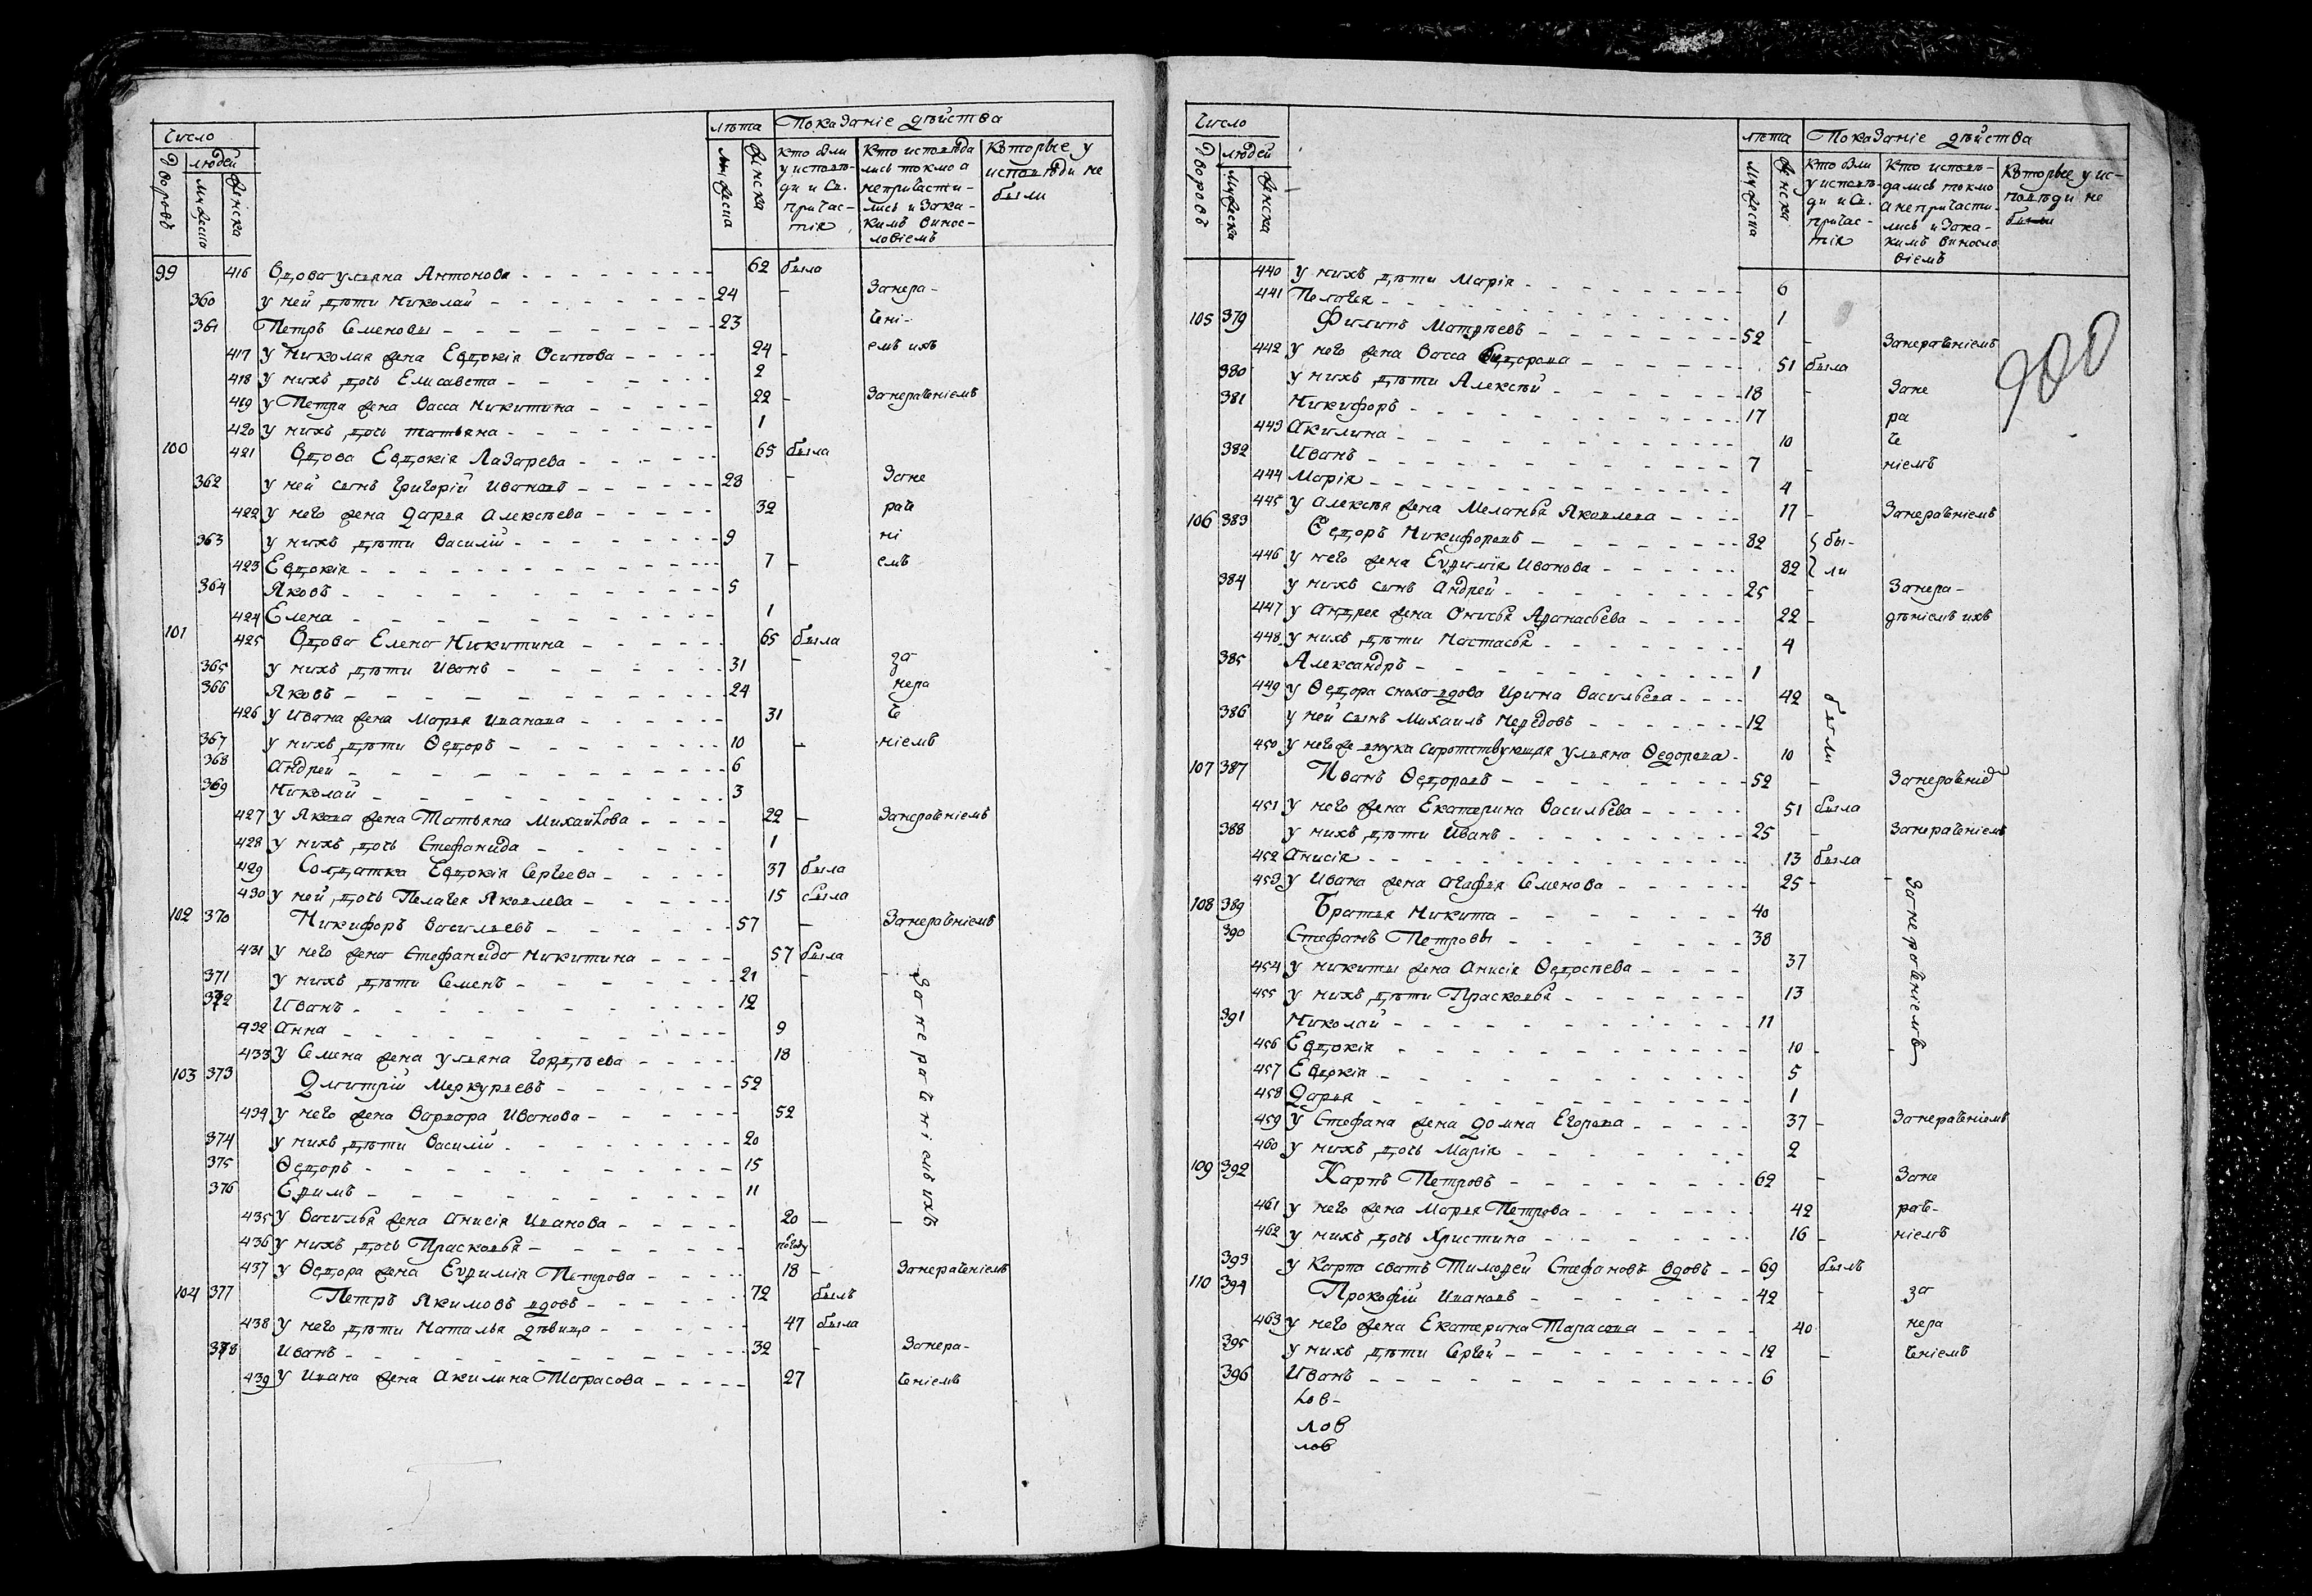 Число
людей
Дворовъ
мужеска
женска
лѣта
мужеска
женска
Показаніе дѣйства
кто были у исповѣди и Св. причастія
Кто исповѣдались токмо а непричастились и Закакимъ винословіемъ
Которые у исповѣди не были
99 416 Вдова ульяна Антонова 62 была
360 у ней дѣти Николай 24 - Занера-
361 Петръ Семеновы 23 чені-
417 у Николая жена Евдокія Осипова 24 - емъ ихъ
418 у нихъ дочь Елисавета 2
419 у Петра жена Васса Никитина 22 - Занераченіемъ
420 у нихъ дочь татьяна 1
100 421 Вдова Евдокія Лазарева 65 была
362 у ней сынъ Григорій Ивановъ 28 - Зане
422 у него жена Дарья Алексѣева 32 раче
363 у нихъ дѣти Василій 9 ні
423 Евдокія 7 - емъ
364 Яковъ 5
424 Елена 1
101 425 Вдова Елена Никитина 65 была
365 у нихъ дѣти Иванъ 31 - за
366 Яковъ 24 нера
426 у Ивана жена Марья Иванова 31 че
367 у нихъ дѣти Ѳедоръ 10 - ніемъ
368 Андрей 6
369 Николай 3
427 у Якова жена Татьяна Михайлова 22 - Занераченіемъ
428 у нихъ дочь Стефанида 1
429 Солдатка Евдокія Сергеева 37 была
430 у ней дочь Пелагея Яковлева 15 была
102 370 Никифоръ Васильевъ 57 - Занераченіемъ
431 у него жена Стефанида Никитина 57 была
371 у нихъ дѣти Семенъ 21 - - Занераченіемъ ихъ
372 Иванъ 12
432 Анна 9
433 у Семена жена ульяна Гордѣева 18
103 373 Дмитрій Меркурьевъ 52
434 у него жена Варвара Иванова 52
374 у нихъ дѣти Василій 20
375 Ѳедоръ 15
376 Ефимъ 11
435 у Василья жена Анисія Иванова 20 - -
436 у нихъ дочь Прасковья
437 у Ѳедора жена Евфимія Петрова 18 - Занераченіемъ
104 377 Петръ Якимовъ вдовъ 72 былъ
438 у него дѣти Наталья дѣвица 47 была
378 Иванъ 32 - Занера-
439 у Ивана жена Акилина Тарасова 27 ченіемъ
Число
людей
Дворовъ
мужеска
женска
лѣта
мужеска
женска
Показаніе дѣйства
кто были у исповѣди и Св. причастія
Кто исповѣдались токмо а непричастились и Закакимъ виносло віемъ
Которые у исповѣди не были
440 у нихъ дѣти Марія 6
441 Пелагея 1
900
105 379 Филипъ Матѳѣевъ 52 - Занераченіемъ
442 у него жена Васса Сидорова 51 была
380 у нихъ дѣти Алексѣй 18 - Зане
381 Никифоръ 17 ра
443 Акилина 10 че
382 Иванъ 7 - ніемъ
444 Марія 4
445 у Алексѣя жена Меланья Яковлева 17 - Занераченіемъ
106 383 Ѳедоръ Никифоровъ 82 бы-
446 у него жена Евфимія Иванова 82 ли
384 у нихъ сынъ Андрей 25 - Занера-
447 у Андрея жена Онисья Афанасьева 22 - дѣніемъ ихъ
448 у нихъ дѣти Настасья 4
385 Александръ 1
449 у Ѳедора сноха вдова Ирина Васильева 42 были
386 у ней сынъ Михаилъ 12
450 у него же внука сиротствующая ульяна Ѳедорова 10
107 387 Иванъ Ѳедоровъ 52 - Занераченіе
451 у него жена Екатерина Васильева 51 была
388 у нихъ дѣти Иванъ 25 - Занераченіемъ
452 Анисія 13 была
453 у Ивана жена Агафья Семенова 25 - - Занераченіемъ
108 389 Братья Никита 40
390 Стефанъ Петровы 38
454 у никиты жена Анисія Ѳедосѣева 37
455 у нихъ дѣти Прасковья 13
391 Николай 11
456 Евдокія 10 - -
457 5
458 Дарья 1
459 у Стефана жена Домна Егорова 37 - Занераченіемъ
460 у нихъ дочь Марія 2
109 392 Карпъ Петровъ 62 - Зане
461 у него жена Марья Петрова 42 раче-
462 у нихъ дочь Христина 16 - ніемъ
393 у Карпа сватъ Тимофей Стефановъ вдовъ 69 былъ
110 394 Прокофій Ивановъ 42 - за
463 у него жена Екатерина Тарасова 40 нера
395 у нихъ дѣти Сергей 12 - ченіемъ
396 Иванъ 6
лов
лов